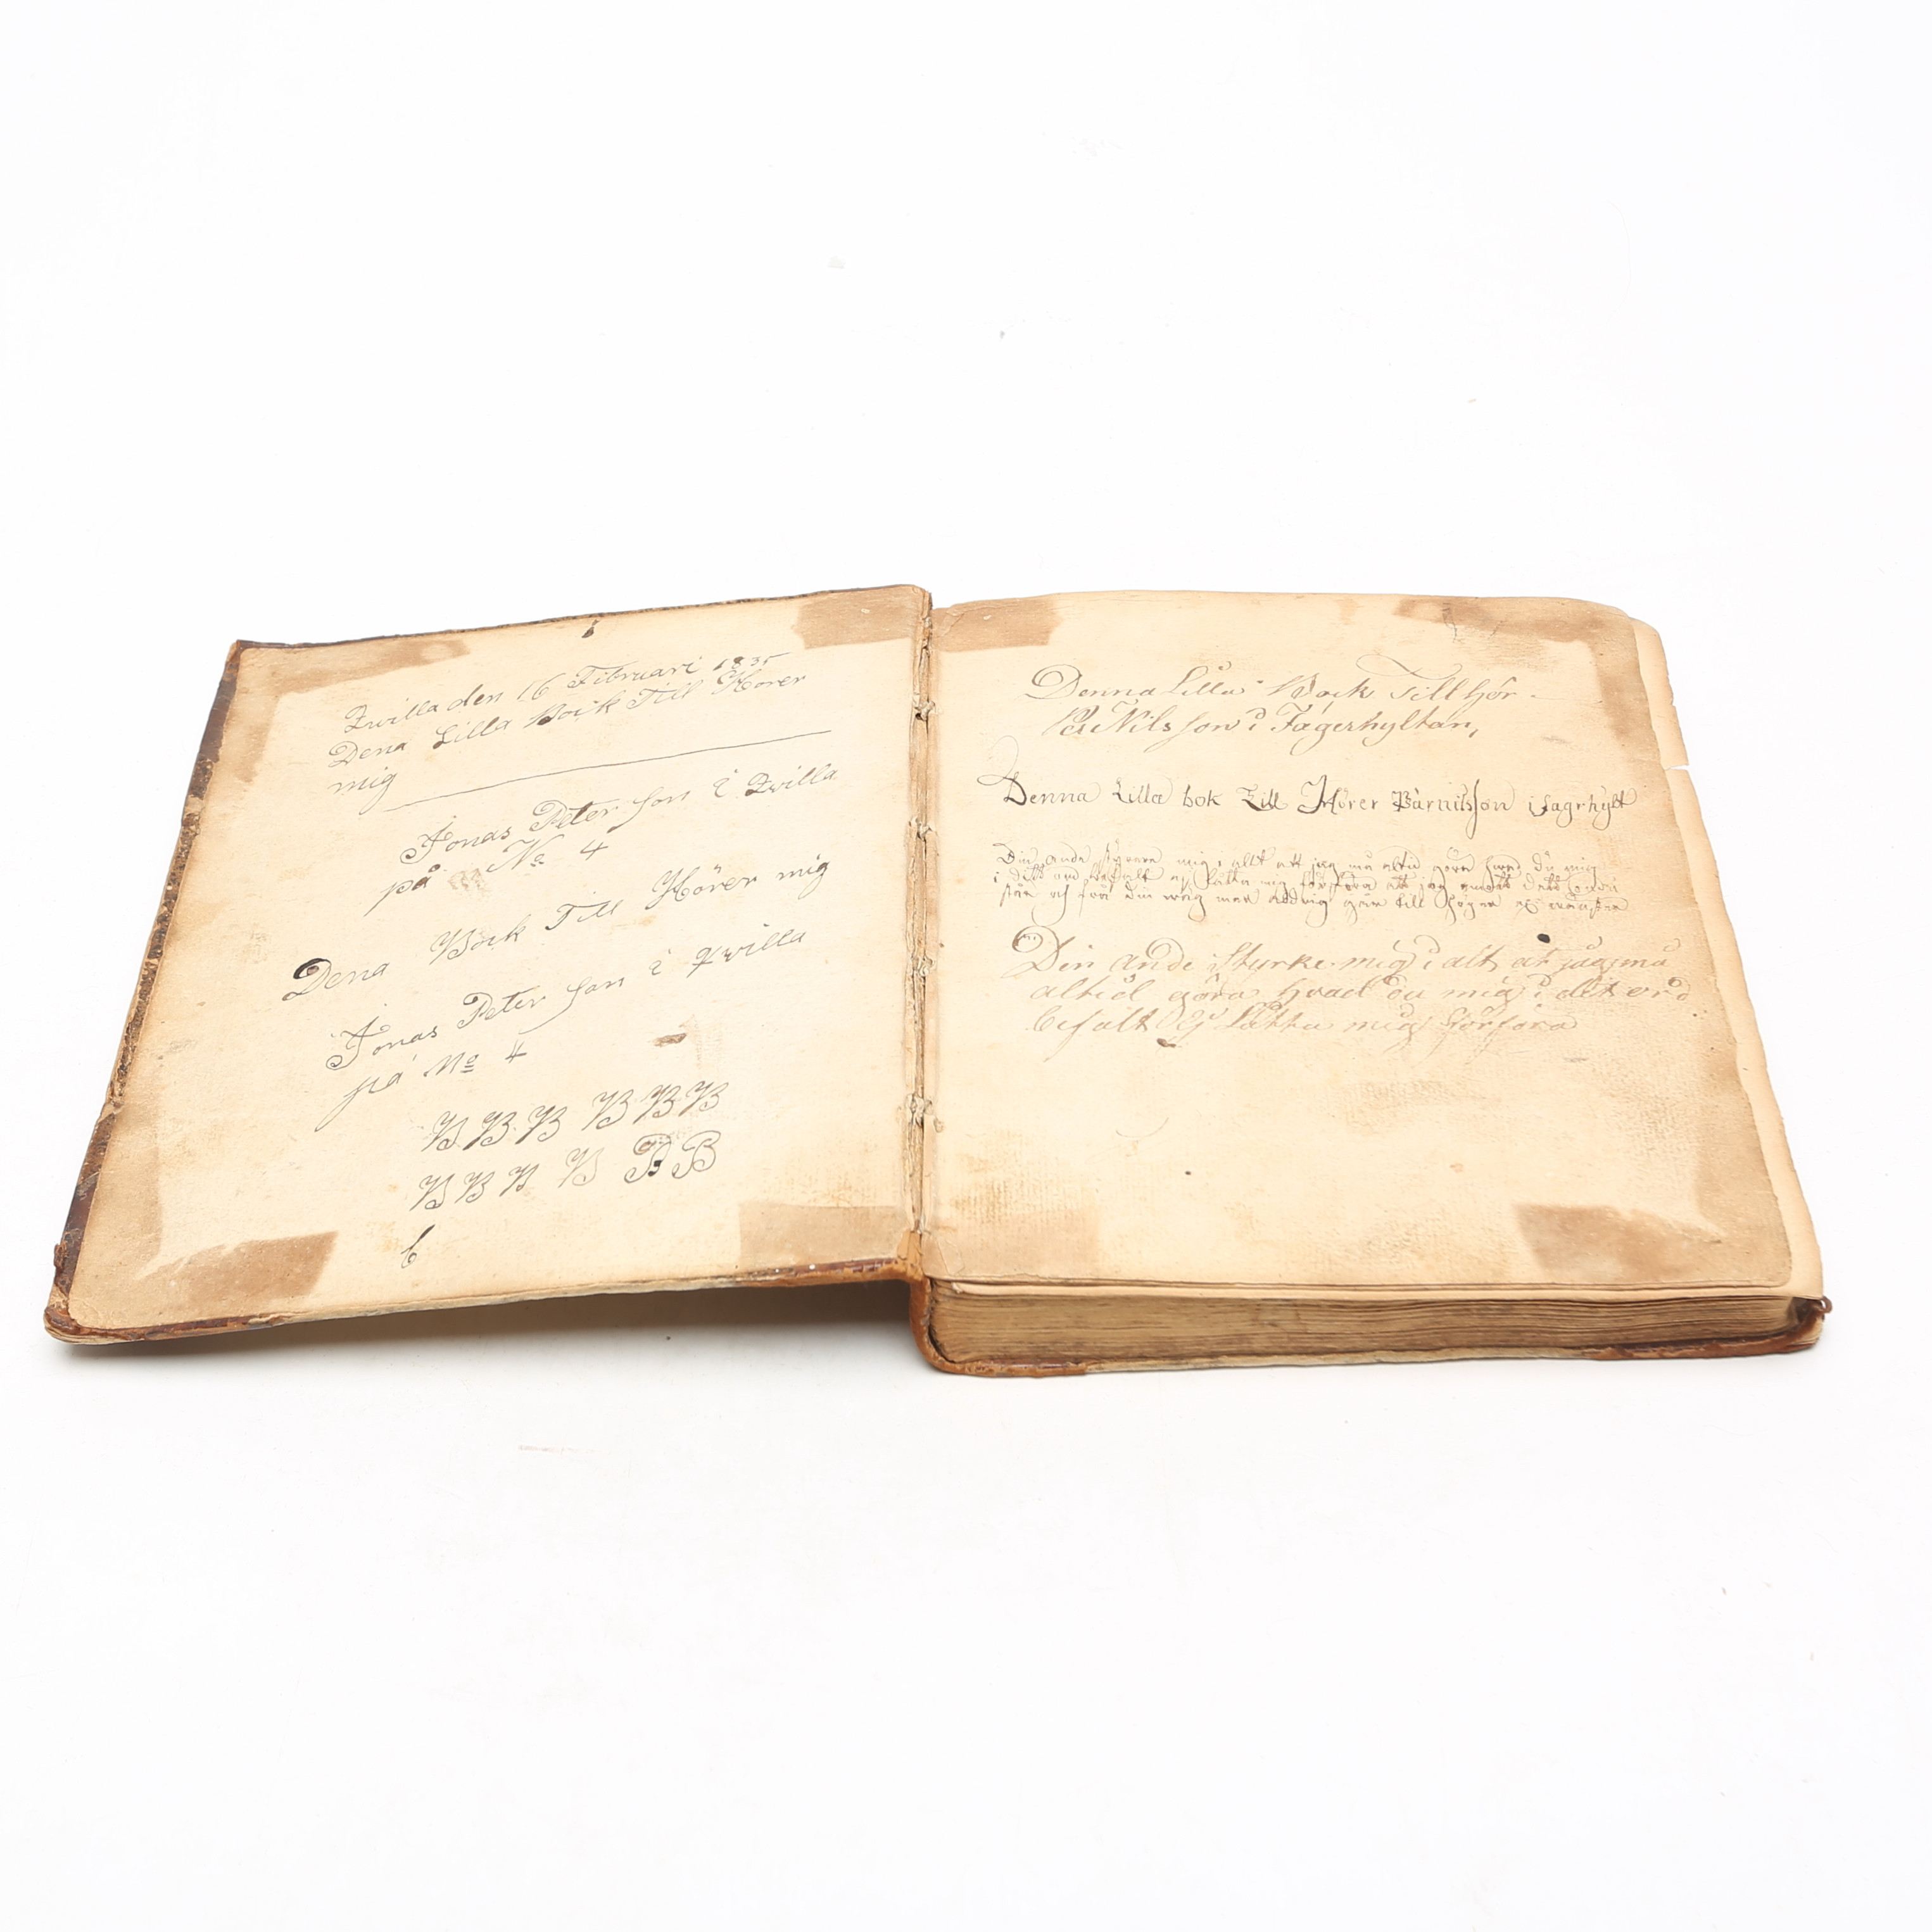 Qvilla den 16 Februari 1835
Dena Lilla Bock Till Hörer
mig
Jonas Peter son i Qvilla
på No 4
Dena Bock Till Hörer mig
Jonas Peter son i Qvilla
på No 4
B B B B B B
B B B B B B
b
Denna Lilla Bock Till hör
Per Nilsson i Fagerhyltan,
Denna Lilla bok Till Hörer Pärnilsson i fagrhylt
Din ande styrcke mig i alt att jag må altid göra hvad du mig
i ditt ord befalt ej låtta mig förföra att jag emott dett
står och från din wäg mer aldrig går till höger
Din ande Styrke mig i alt at jag må
altid göra hvad du mig i dit ord
befalt Ej låtta mig förföra